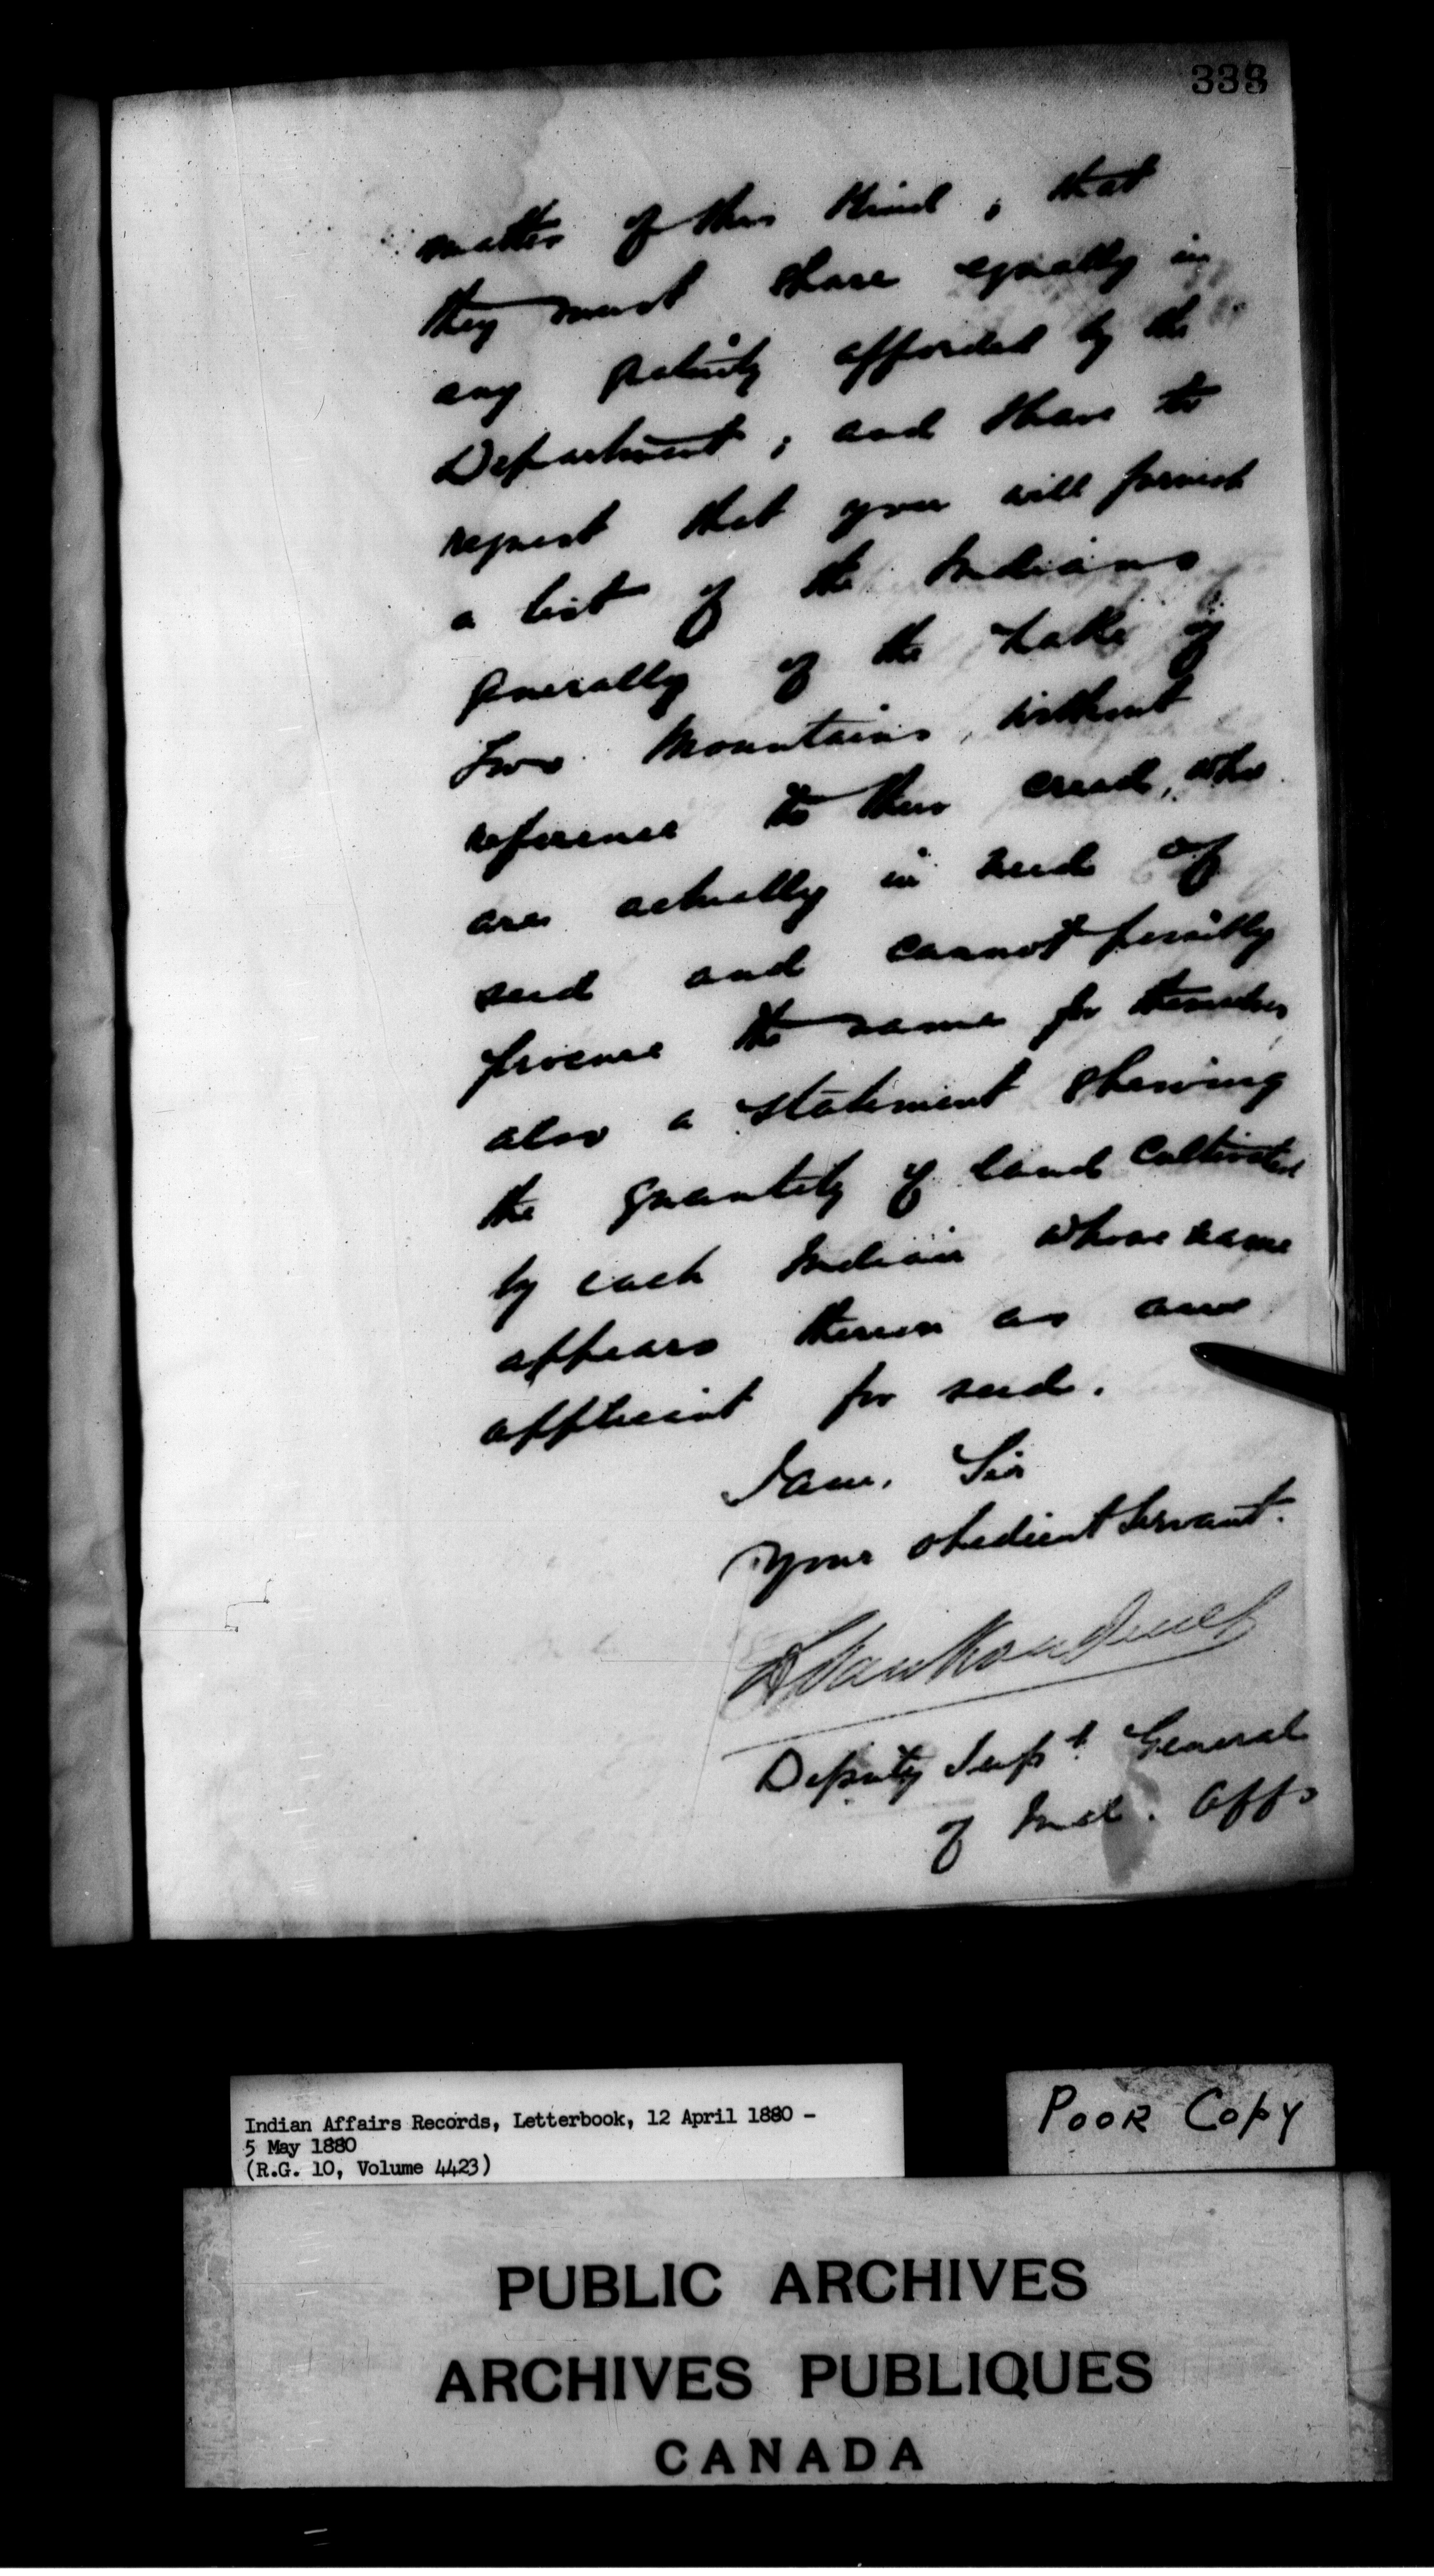 333
matter of this kind; that
they must share equally in
any gratuity afforded by the
Department; and I have to
request that you will furnish
a list of the Indians
generally of the Lake of
Two Mountains, without
reference to their creed, who
are actually in need of
seed and cannot possibly
procure the same for themselves,
also a statement shewing
the quantity of land cultivated
by each Indian whose name
appears thereon as an
applicant for seed.
I am, Sir
Your obedient Servant.
L VanKoughnet
Deputy Supt. General
of Ind. Affs
Indian Affairs Records, Letterbook, 12 April 1880 -
5 May 1880
(R.G. 10, Volume 4423)
POOR COPY
PUBLIC ARCHIVES
ARCHIVES PUBLIQUES
CANADA